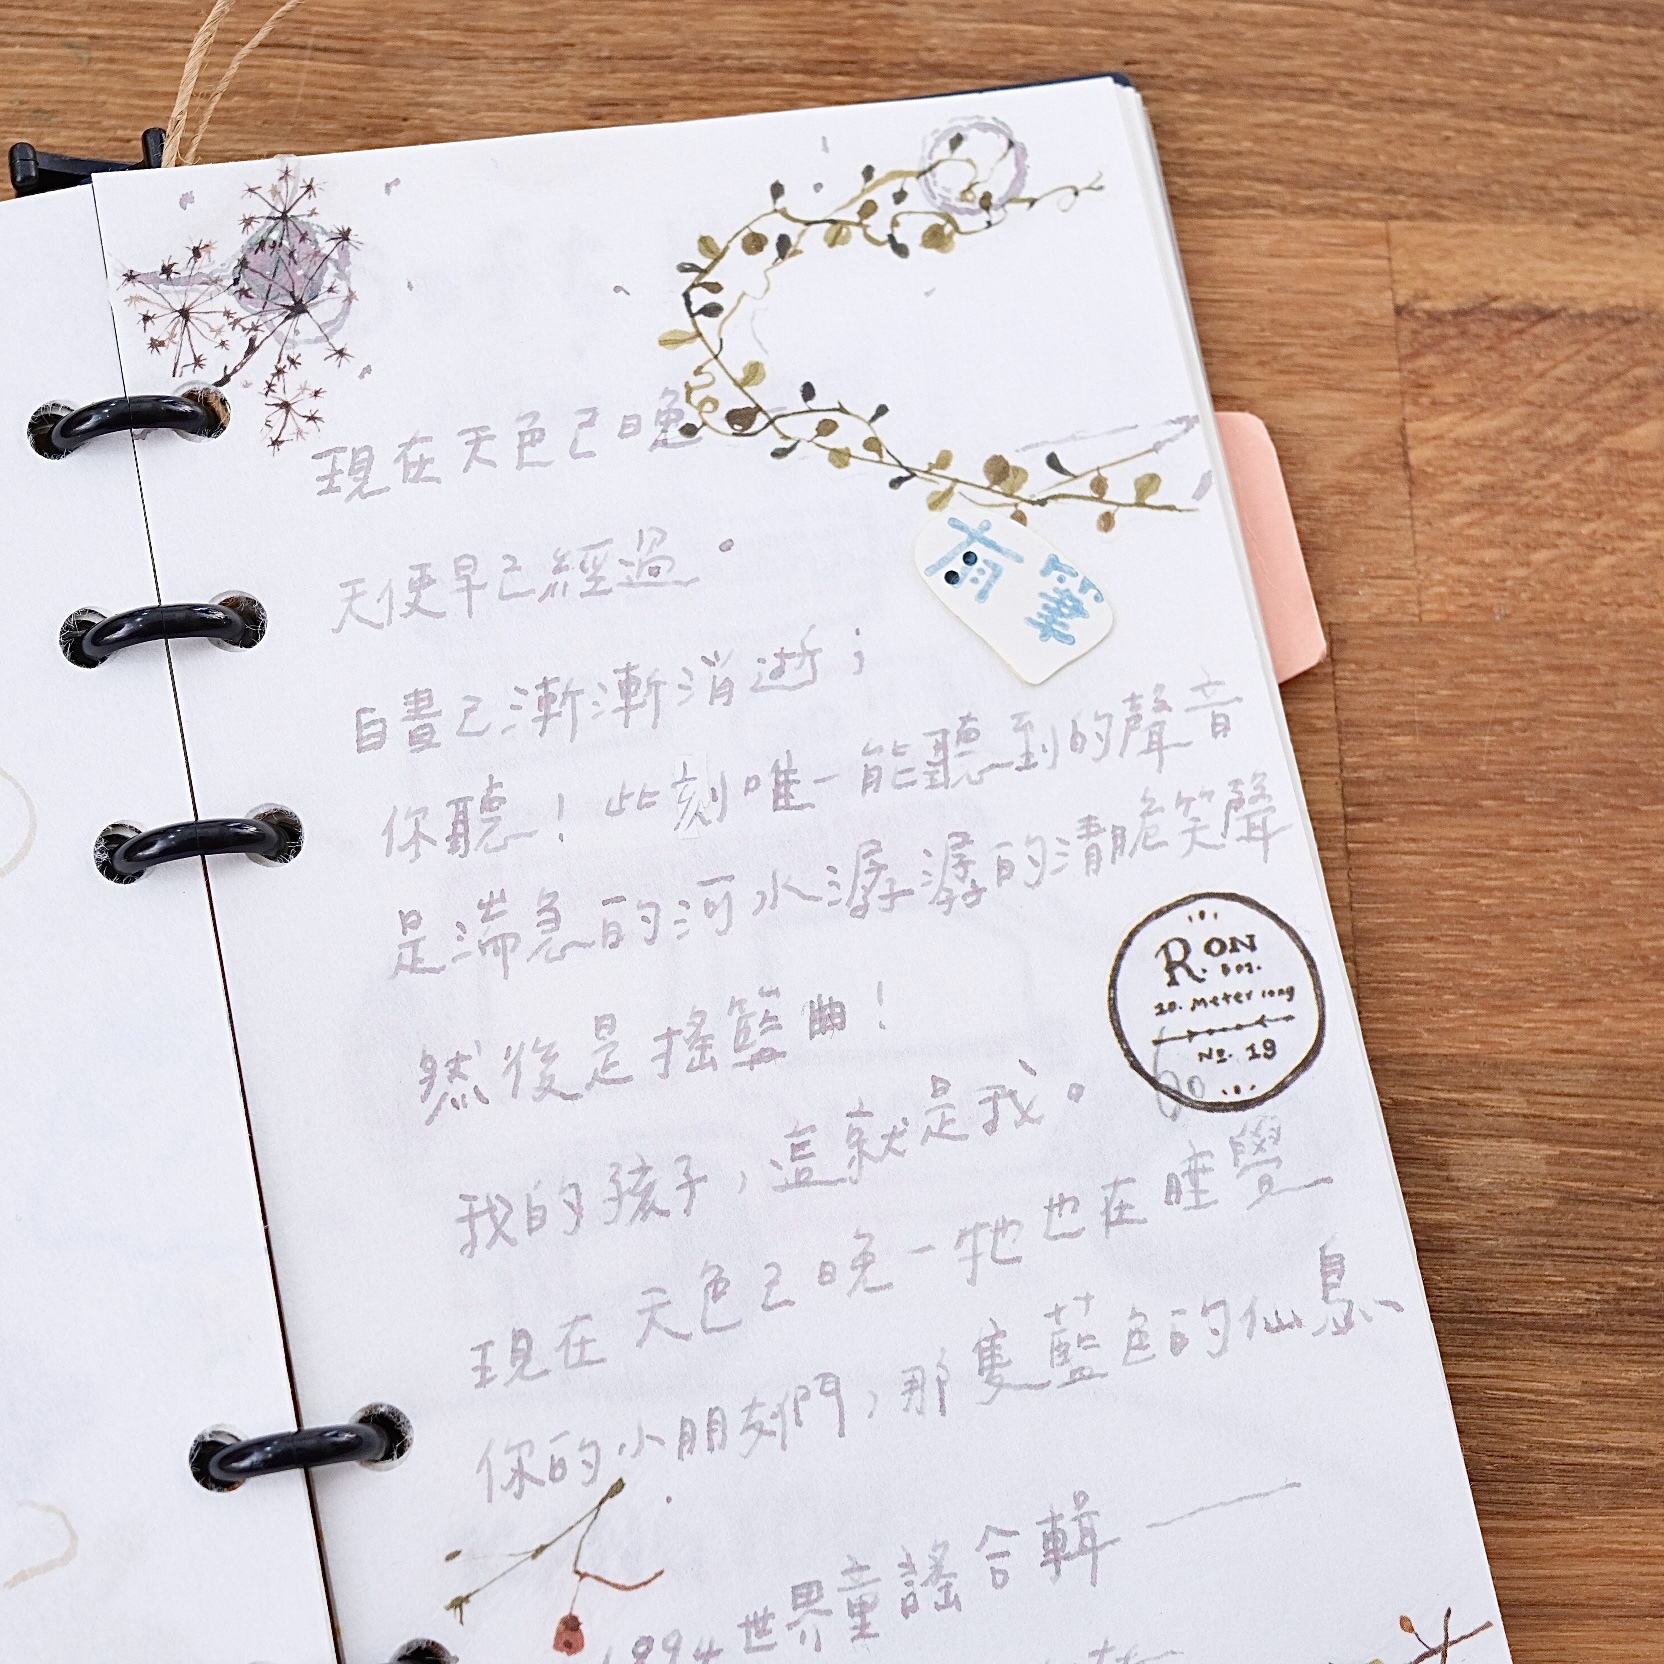 現在天色已晚
天使早已經過。
白晝已漸漸消逝；
你聽！此刻唯一能聽到的聲音
是湍急的河水潺潺的清脆笑聲
然後是搖籃曲！
我的孩子，這就是我。
現在天色已晚一牠也在睡覺
你的小朋友們，那隻藍色的仙
1994世界童謠合輯——
布
筆
RON
20. Meter long
No. 19